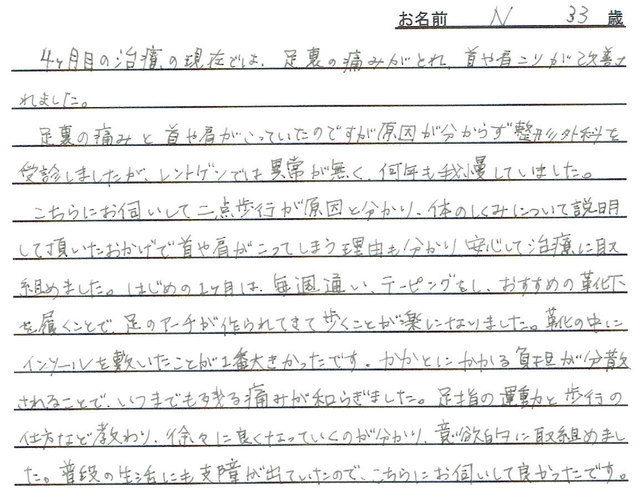 お名前 N 33 歳
4ヶ月目の治療の現在では、足裏の痛みがとれ、首や肩こりが改善さ
れました。
足裏の痛みと首や肩がこっていたのですが原因が分からず整形外科を
受診しましたが、レントゲンでは異常が無く、何年も我慢していました。
こちらにお伺いして二点歩行が原因と分かり、体のしくみについて説明
して頂いたおかげで首や肩がこってしまう理由も分かり安心して治療に取
組めました。はじめの1ヶ月は、毎週通い、テーピングをし、おすすめの靴下
を履くことで、足のアーチが作られてきて歩くことが楽になりました。靴の中に
インソールを敷いたことが1番大きかったです。かかとにかかる負担が分散
されることで、いつまでも残る痛みが和らぎました。足指の運動と歩行の
仕方など教わり、徐々に良くなっていくのが分かり、意欲的に取組めまし
た。普段の生活にも支障が出ていたので、こちらにお伺いして良かったです。